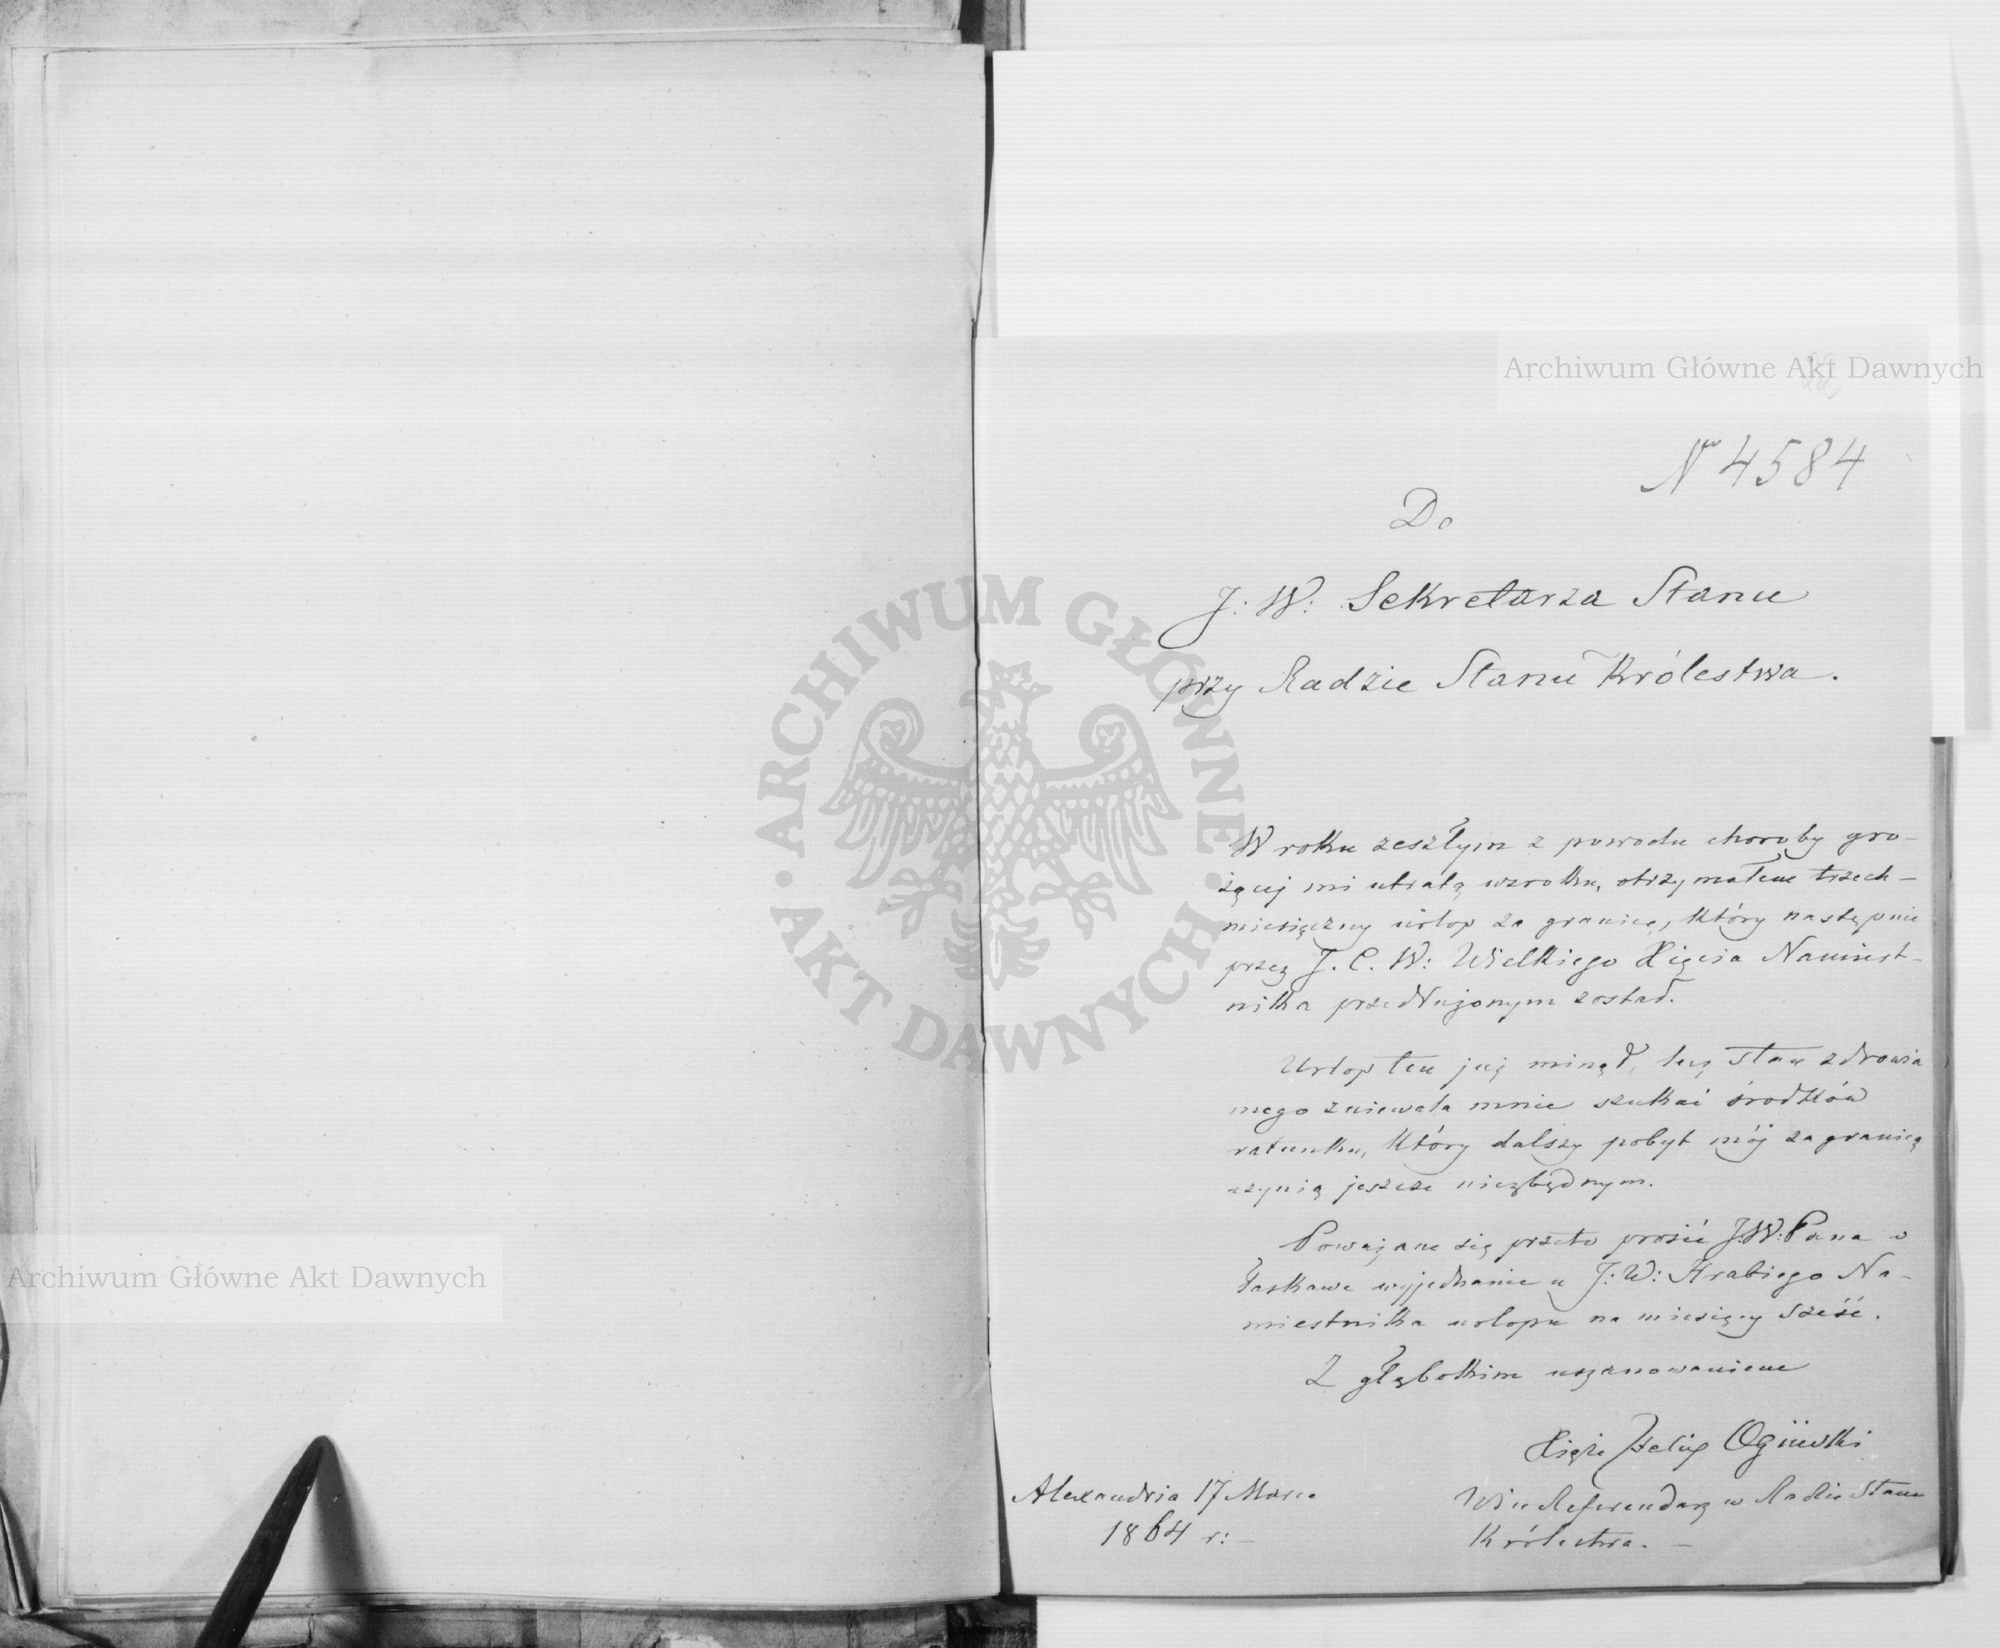 Archiwum Główne Akt Dawnych
No 4584
Do
J: W: Sekretarza Stanu
przy Radzie Stanu Królestwa.
W roku zeszłym z powodu choroby gro-
żącej mi utratą wzroku, otrzymałem trzech-
miesięczny urlop za granicę, który następnie
przez J. C. W: Wielkiego Xięcia Namiest-
nika przedłużonym został.
Urlop ten już minął, lecz stan zdrowia
mego zniewala mnie szukać środków
ratunku, który dalszy pobyt mój za granicą
czynią jeszcze niezbędnym.
Poważam się przeto prosić J:W: Pana o
łaskawe wyjednanie u J: W: Hrabiego Na-
miestnika urlopu na miesięcy sześć.
Z głębokim uszanowaniem
Xiąże Felix Ogiński
Vice Referendarz w Radzie Stanu
Królestwa. -
Alexandria 17 Marca
1864 r: -
ARCHIWUM GŁÓWNE AKT DAWNYCH
Archiwum Główne Akt Dawnych